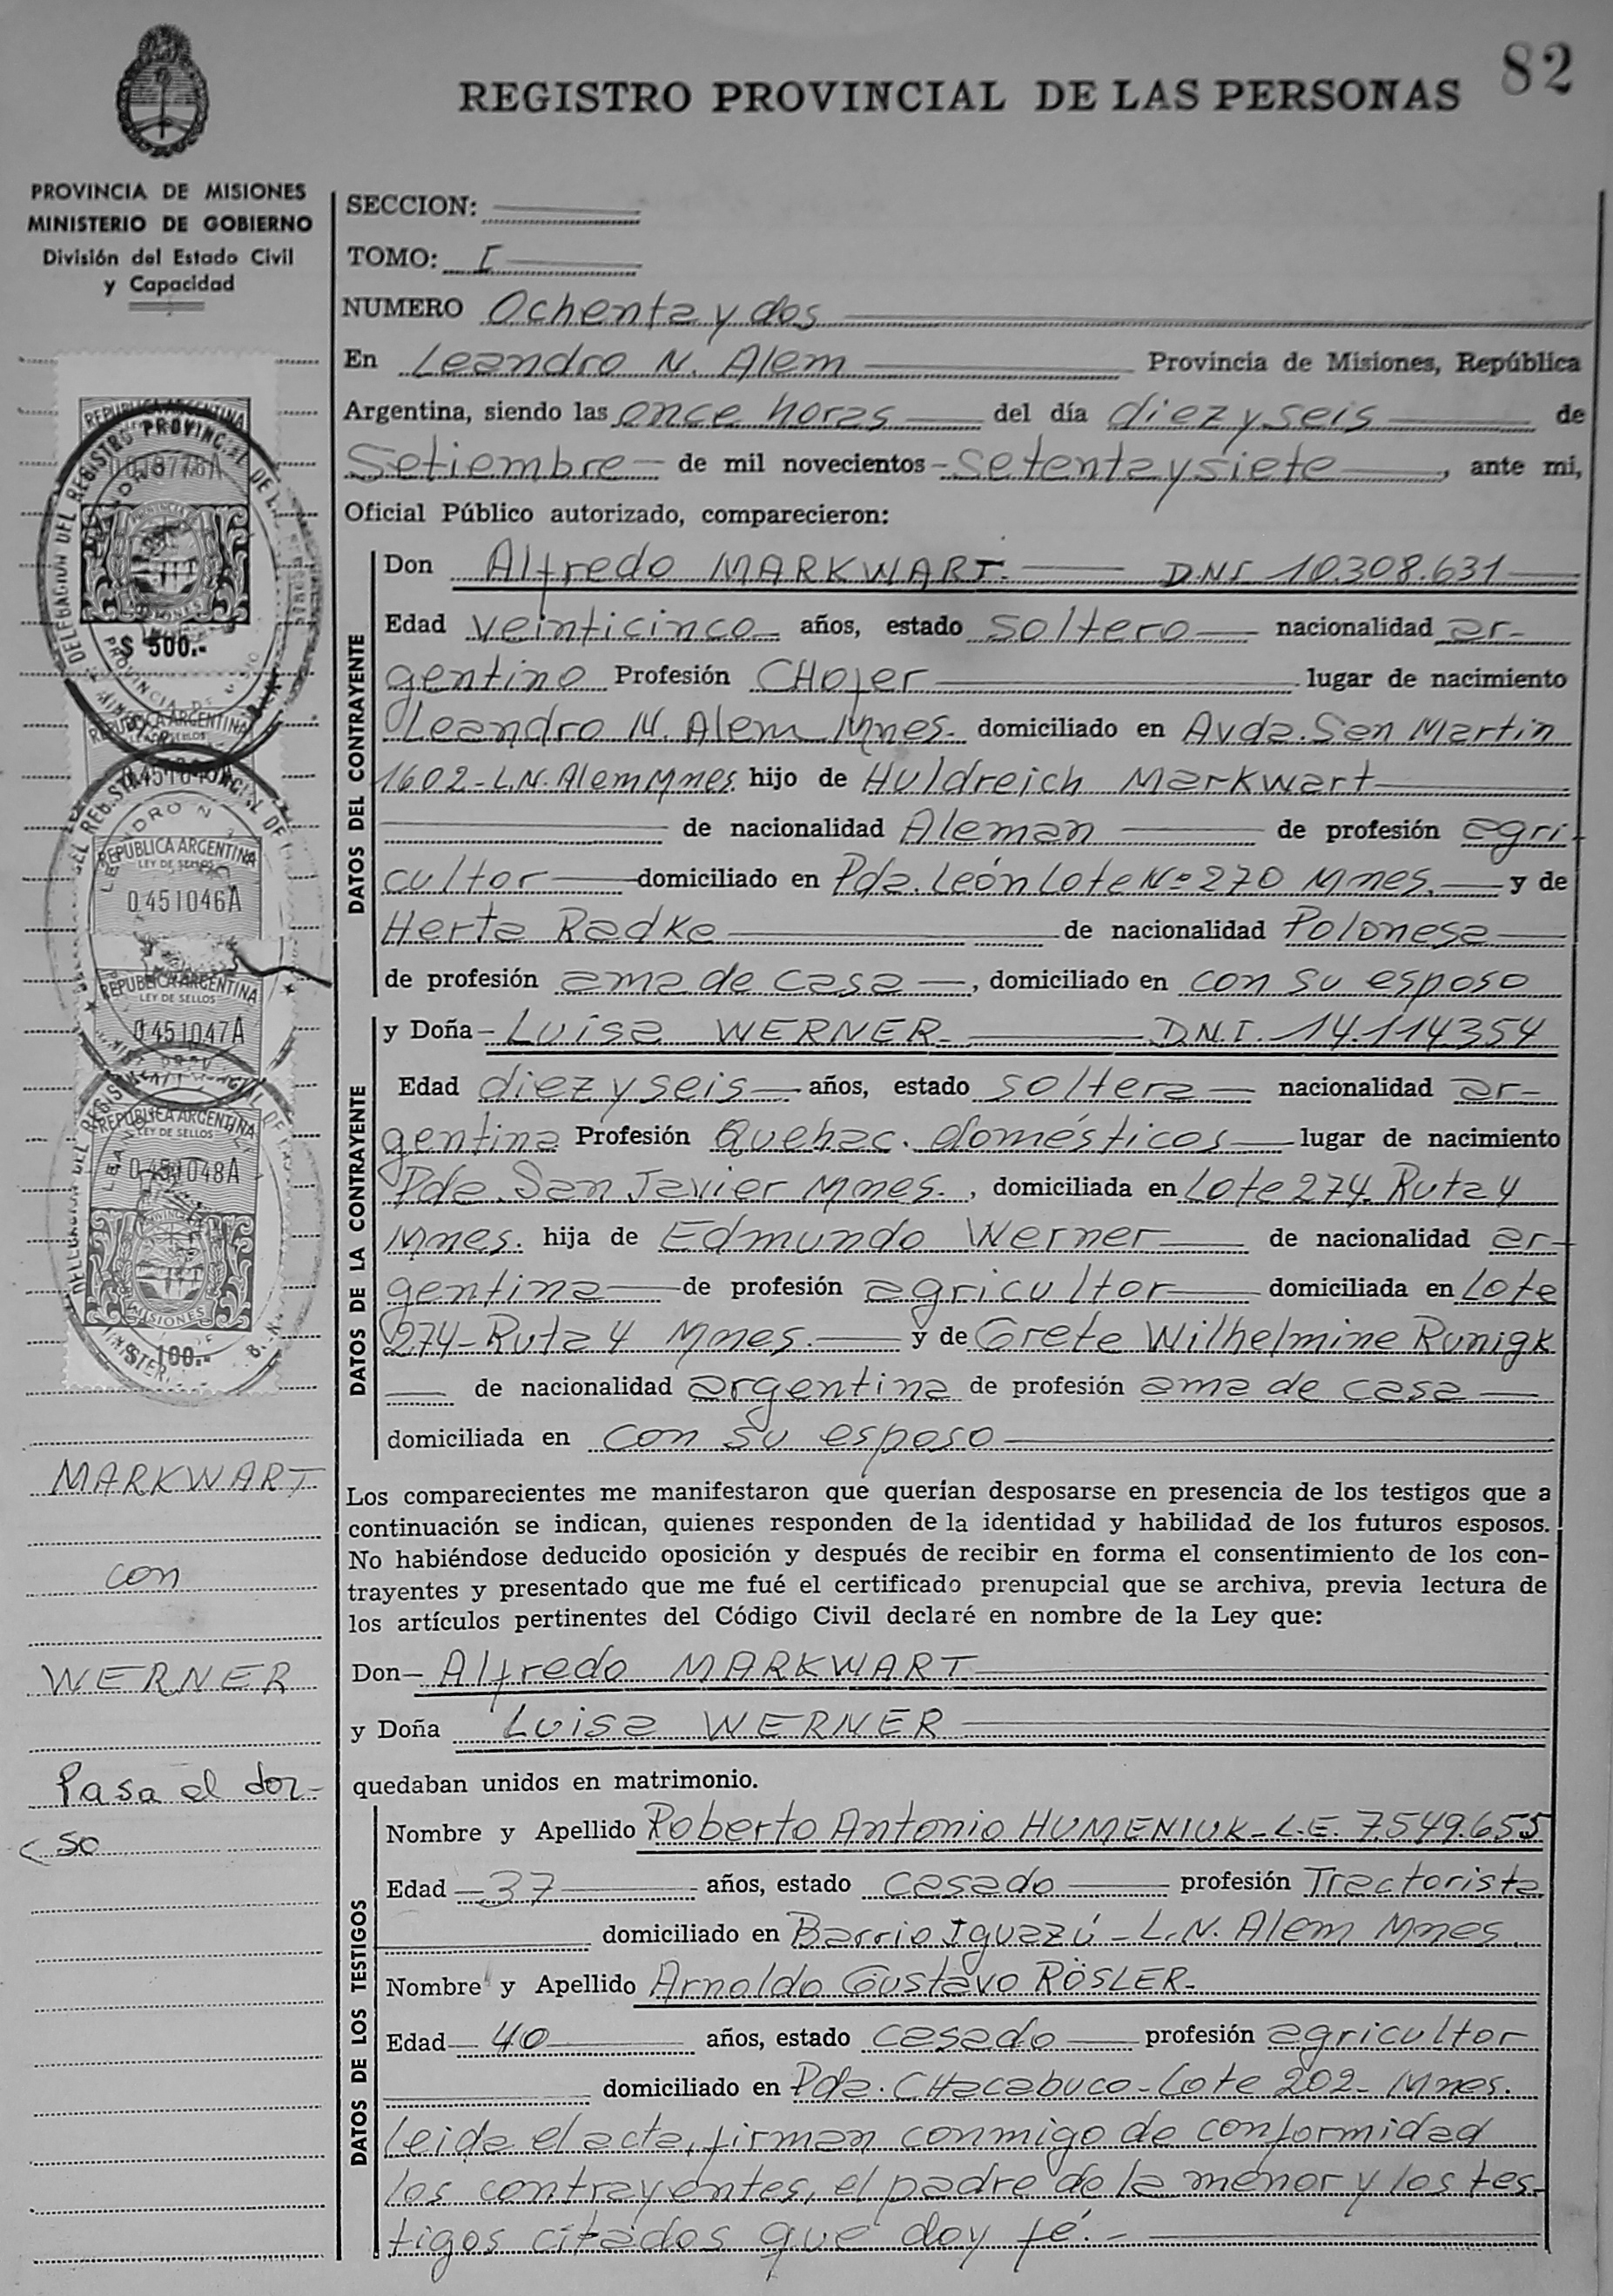 82
REGISTRO PROVINCIAL DE LAS PERSONAS
PROVINCIA DE MISIONES
MINISTERIO DE GOBIERNO
División del Estado Civil
y Capacidad
SECCION:
TOMO: I
NUMERO Ochenta y dos
En Leandro N. Alem Provincia de Misiones, República
Argentina, siendo las once horas del día diez y seis de
Setiembre de mil novecientos setenta y siete, ante mi,
Oficial Público autorizado, comparecieron:
DATOS DEL CONTRAYENTE
Don Alfredo MARKWART. DNI 10.308.631
Edad veinticinco años, estado soltero nacionalidad ar-
gentino Profesión CHofer lugar de nacimiento
Leandro N. Alem Mnes. domiciliado en Avda. San Martin
1602-L.N. Alem Mnes. hijo de Huldreich Markwart
de nacionalidad Aleman de profesión agri-
cultor domiciliado en Pda. León Lote Nº 270 Mnes. y de
Herta Radke de nacionalidad Polonesa
de profesión ama de casa, domiciliado en con su esposo
DATOS DE LA CONTRAYENTE
y Doña Luisa WERNER D.N.I. 14.114354
Edad diez y seis años, estado soltera nacionalidad ar-
gentina Profesión Quehac. domésticos lugar de nacimiento
Pda. San Javier Mnes., domiciliada en Lote 274. Ruta 4
Mnes. hija de Edmundo Werner de nacionalidad ar-
gentina de profesión agricultor domiciliada en Lote
274-Ruta 4 Mnes. y de Grete Wilhelmine Runigk
de nacionalidad argentina de profesión ama de casa
domiciliada en con su esposo
Los comparecientes me manifestaron que querían desposarse en presencia de los testigos que a
continuación se indican, quienes responden de la identidad y habilidad de los futuros esposos.
No habiéndose deducido oposición y después de recibir en forma el consentimiento de los con-
trayentes y presentado que me fué el certificado prenupcial que se archiva, previa lectura de
los artículos pertinentes del Código Civil declaré en nombre de la Ley que:
Don Alfredo MARKWART
y Doña Luisa WERNER
quedaban unidos en matrimonio.
DATOS DE LOS TESTIGOS
Nombre y Apellido Roberto Antonio HUMENIUK-L.E. 7.549.655
Edad 37 años, estado casado profesión Tractorista
domiciliado en Barrio Iguazú - L.N. Alem Mnes.
Nombre y Apellido Arnoldo Gustavo RÖSLER-
Edad 40 años, estado casado profesión agricultor
domiciliado en Pda. CHacabuco-Lote 202- Mnes.
leida el acta, firman conmigo de conformidad
los contrayentes, el padre de la menor y los tes-
tigos citados que doy fé.-
REPUBLICA ARGENTINA
$ 500.-
REPUBLICA ARGENTINA
REPUBLICA ARGENTINA
LEY DE SELLOS
0451046A
REPUBLICA ARGENTINA
LEY DE SELLOS
0451047A
REPUBLICA ARGENTINA
LEY DE SELLOS
0451048A
MISIONES
$ 100.-
MARKWART
con
WERNER
Pasa al dor-
so